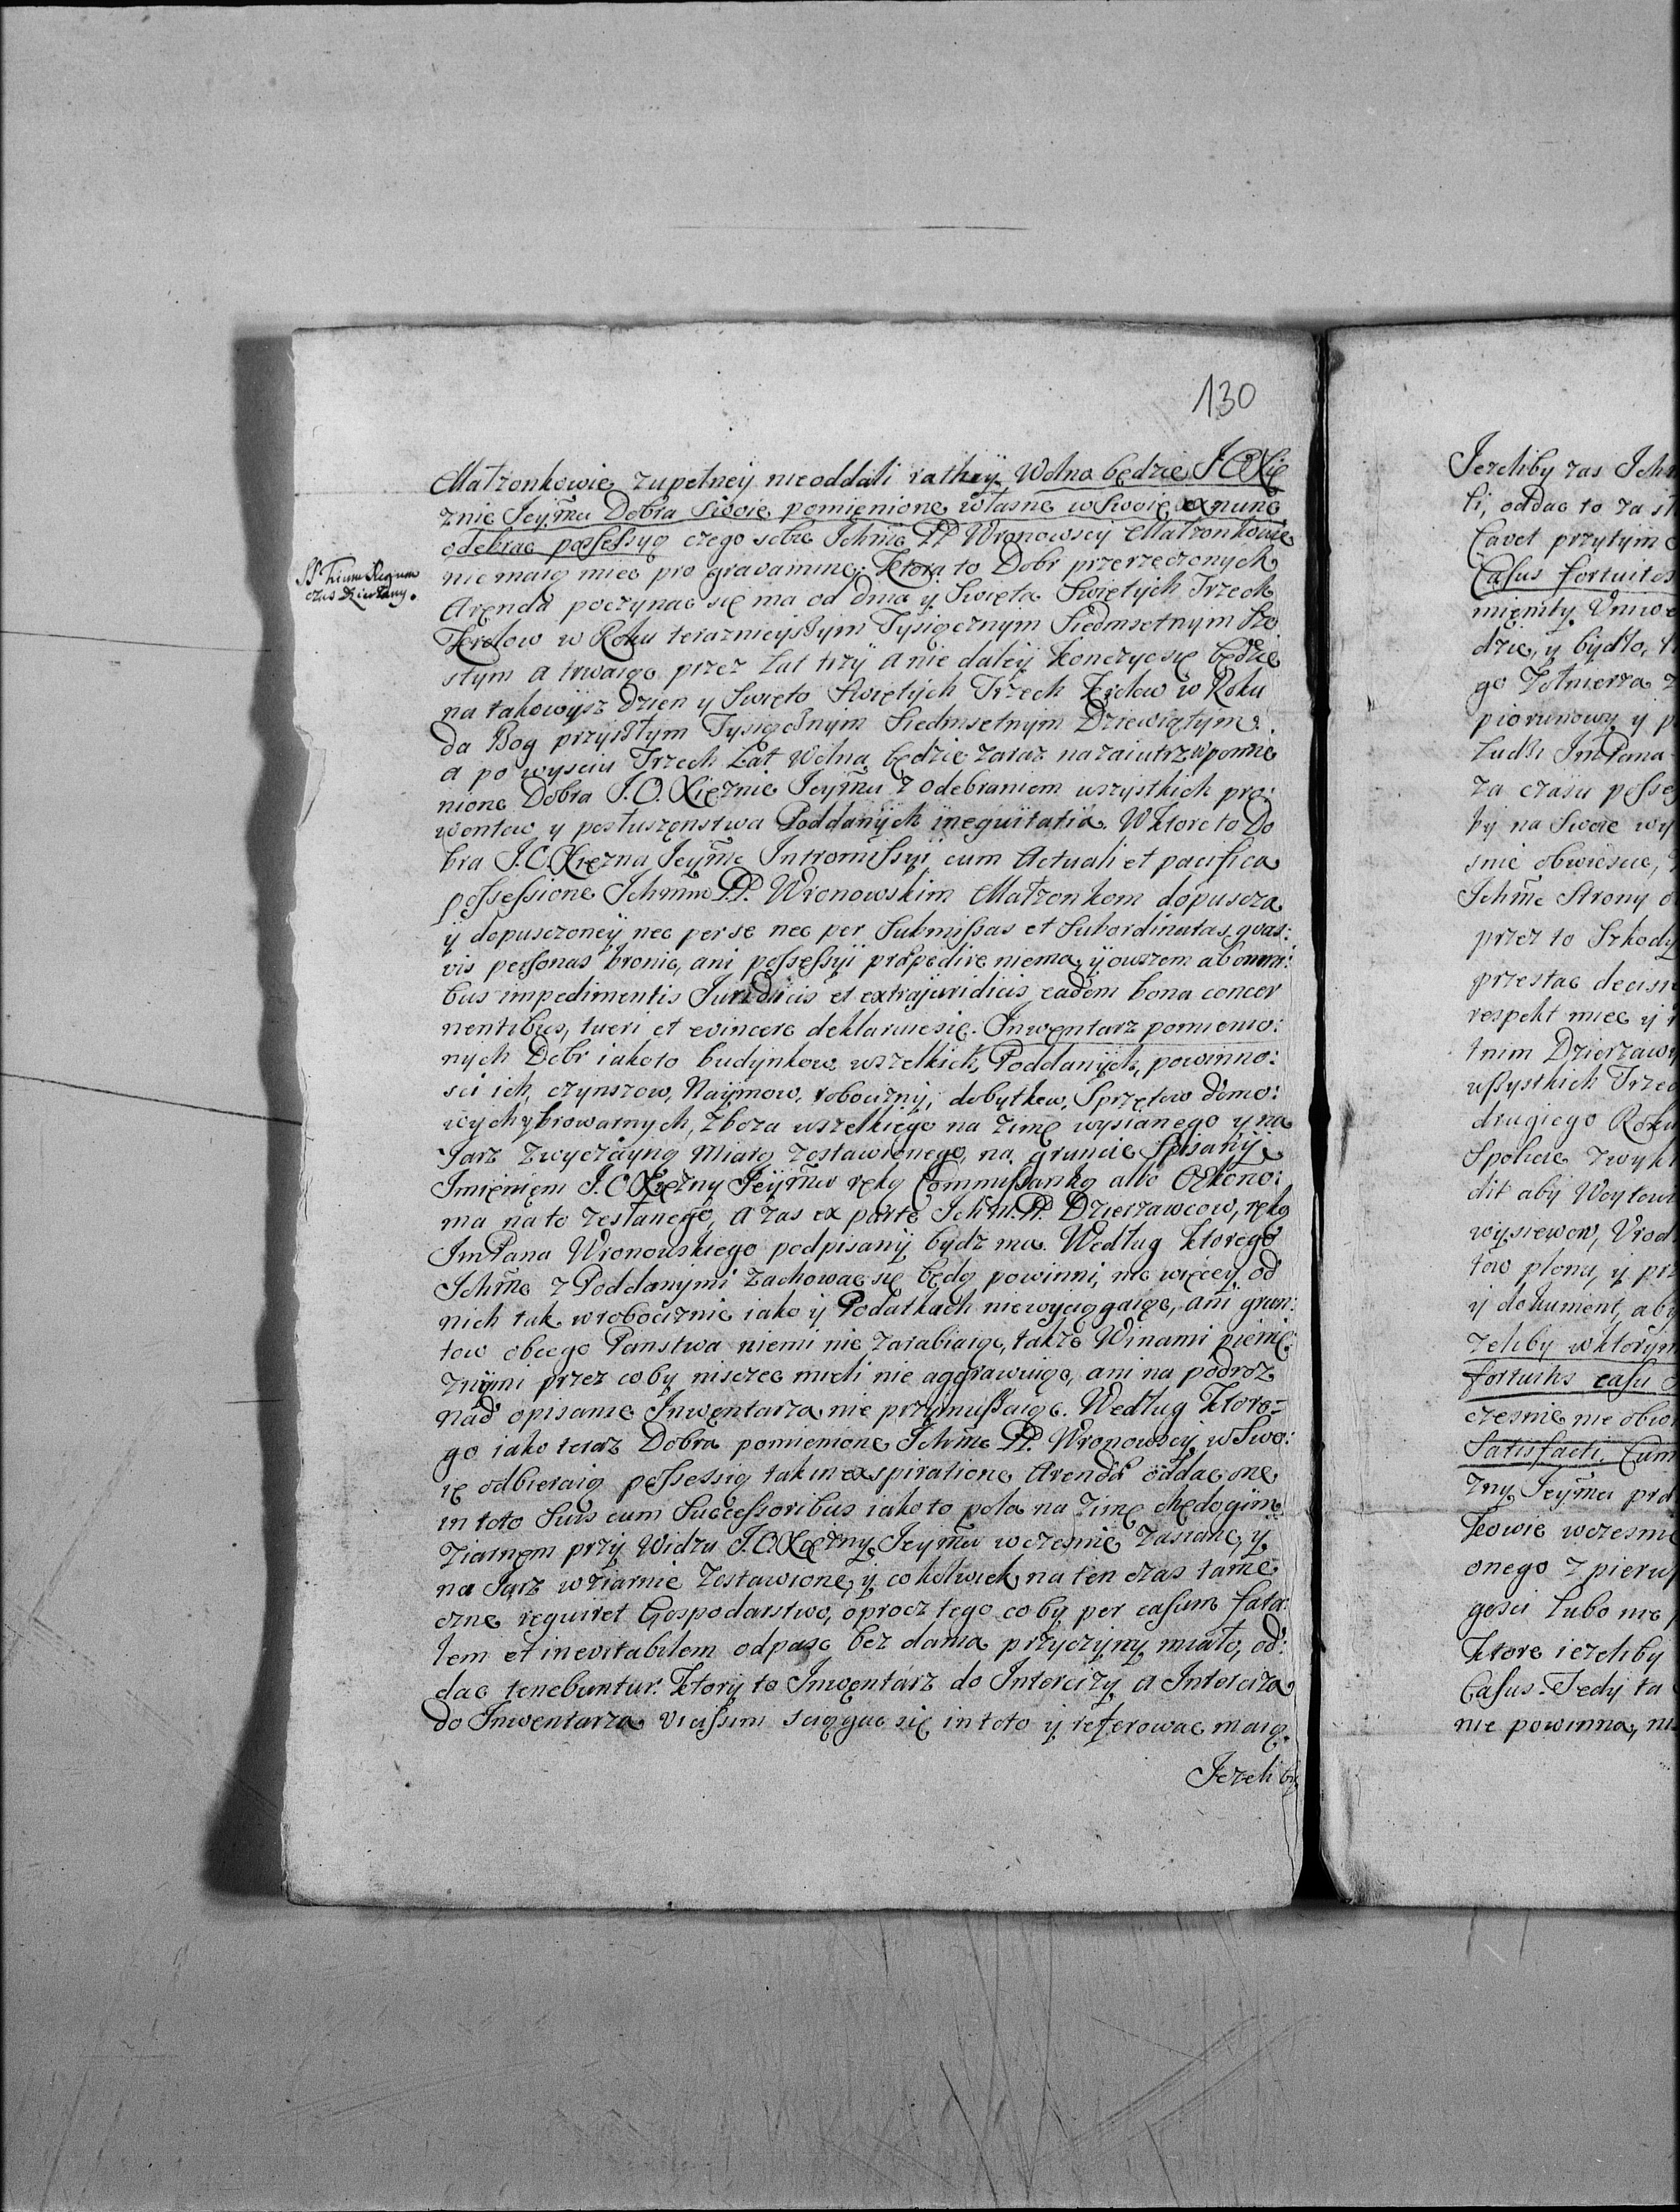 130
Małzonkowie zupełney nieoddali rathÿ. Wolno będzie J.O.Xię
znie Jeÿmci Dobra Swoie pomienione własne w Swoię ex nunc
odebrac possessyą czego sobie Ichmć PP Wronowscy Małzonkowie
nie maią miec pro gravamine. Ktora to Dobr przerzeczonych
SS. Trium Regum
czas Dzierżawy.
Arenda poczynac się ma od dnia y Swięta Swiętych Trzech
Krolow w Roku teraznieyszym Tysiącznym Siedmsetnym Szo
stym a trwaiąc przez Lat trzy a nie daley konczyc się będzie
na takowysz Dzien y Swięto Swiętych Trzech Krolow w Roku
da Bog przyszłym Tysiącznym Siedmsetnym Dziewiątym:
a po wysciu Trzech Lat Wolno będzie zaraz nazaiutrz w pomie
nione Dobra J.O. Xięznie Jeymci z odebraniem wszystkich pro:
wentow y posłuszenstwa Poddanych inequitatia. W ktore to Do
bra J.O. Xięzna Jeymć Intromissyi cum Actuali et pacifica
possessione Ichmm PP. Wronowskim Małzonkom dopuscza
y dopusczoney nec per se nec per Submissas et Subordinatas quas:
vis personas bronic, ani possessyi præpedire niema, y owszem ab omni:
bus impedimentis Juridicis et extrajuridicis eadem bona concer
nentibus, tueri et evincere deklaruie się. Inwentarz pomienio:
nych Dobr iako to budynkow wszelkich, Poddanych, powinno:
sci ich, czynszow, Naymow, robocizny, dobytkow, Sprzętow domo:
wych y browarnych, zboza wszelkiego na zimę wysianego y na
Jarz zwyczayną miarą zostawionego, na gruncie Spisany
Imieniem J.O. Xięzny Jeymci ręką Commissarską albo Oekono:
ma na to zesłanego, a zas ex parte Ichm. PP. Dzierzawcow, ręką
ImPana Wronowskiego podpisany bydz ma. Według ktorego
Ichmć z Poddanymi zachowac się będą powinni, nic więcey od
nich tak w robociznie iako y Podatkach niewyciągaiąc, ani grun:
tow obcego Panstwa niemi nie zarabiaiąc, także Winami pienię:
znymi przez coby nisczec mieli nie aggrawuiąc, ani na podroz
nad opisanie Inwentarza nie przymuszaiąc. Według ktore=
go iako teraz Dobra pomienione Ichmć PP. Wronowscy w Swo:
ię odbieraią possessią tak in exspiratione Arendy oddac one
in toto Suis cum Successoribus iako to pola na zimę chędogim
ziarnem przy Widzu J.O. Xięzny Jeymci wczesnie zasiane, y
na Jarz w ziarnie zostawione, y cokolwiek na ten czas tame
czne requiret Gospodarstwo, oprocz tego coby per casum fata:
lem et inevitabilem odpasc bez dania przyczyny miało, od:
dac tenebuntur. Ktory to Inwentarz do Intercizy a Interciza
do Inwentarza vicissim sciągac się in toto y referowac maią.
Jezeliby
Jezeliby zas Ichm
li, oddac to za
Cavet przytym
Casus fortuitos
mienity, Uniwe
dzie, y bydło,
go Zołnierza
piorunowy y
Ludzi ImPana
za czasu posses
by na Swoie wy
snie obwiescic,
Ichmć Strony
przez to Szkody
przestac decis
respekt miec y
tnim Dzierzaw
wszystkich Trzec
drugiego Roku
Spolicie zwykł
dit aby Woytow
wysiewow, Urod
tow plonu, y prz
y dokument, aby
zeliby w ktorym
fortuitis casu
czesnie nie obw
Satisfacti. Cum
zny Jeymci pro
kowie wczesnie
onego z pierw
gosci Lubo nie
Ktore iezeliby
Casus. Tedy ta
nie powinna, ni